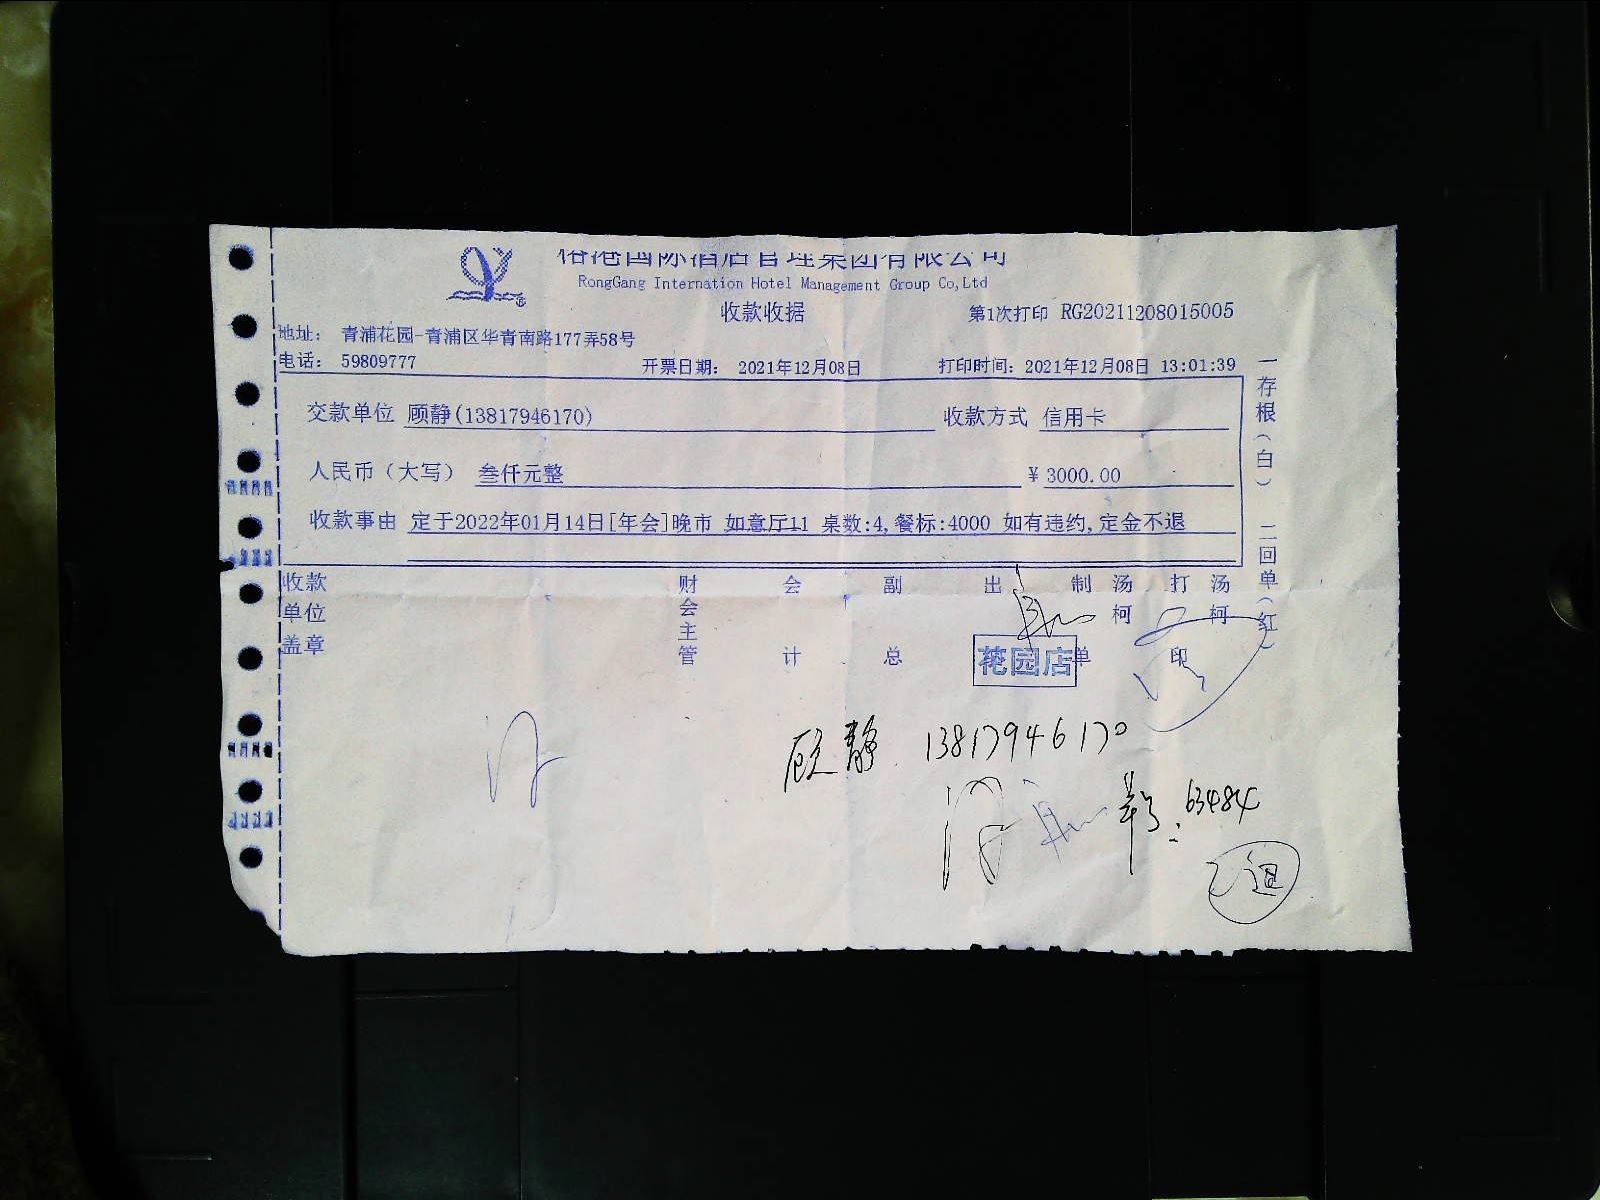 榕港国际酒店管理集团有限公司
RongGang Internation Hotel Management Group Co,Ltd
收款收据
第1次打印 RG20211208015005
地址： 青浦花园-青浦区华青南路177弄58号
电话： 59809777 开票日期： 2021年12月08日 打印时间：2021年12月08日 13:01:39
交款单位 顾静(13817946170) 收款方式 信用卡
人民币（大写） 叁仟元整 ¥ 3000.00
收款事由 定于2022年01月14日[年会]晚市 如意厅11 桌数:4,餐标:4000 如有违约,定金不退
一存根（白） 二回单（红）
收款单位盖章 财会主管 会计 副总 出 制单 汤柯 打印 汤柯
花园店
顾静 13817946170
63484
已退